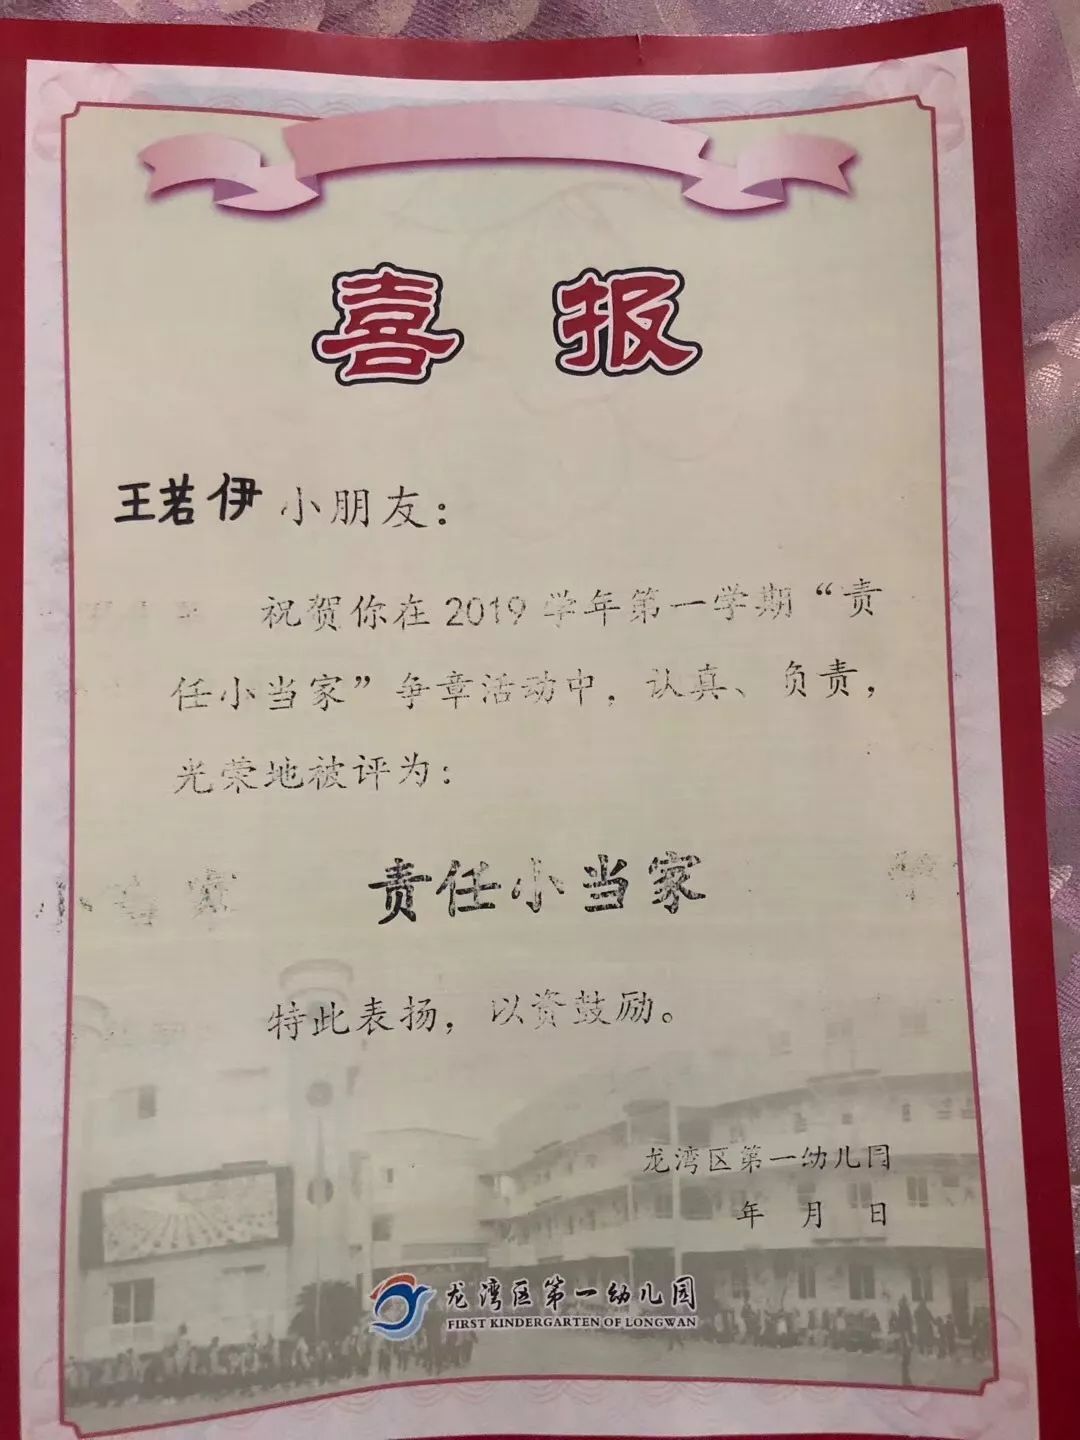 喜报
王若伊小朋友：
祝贺你在2019学年第一学期“责
任小当家”争章活动中，认真、负责，
光荣地被评为：
责任小当家
特此表扬，以资鼓励。
龙湾区第一幼儿园
年 月 日
龙湾区第一幼儿园
FIRST KINDERGARTEN OF LONGWAN